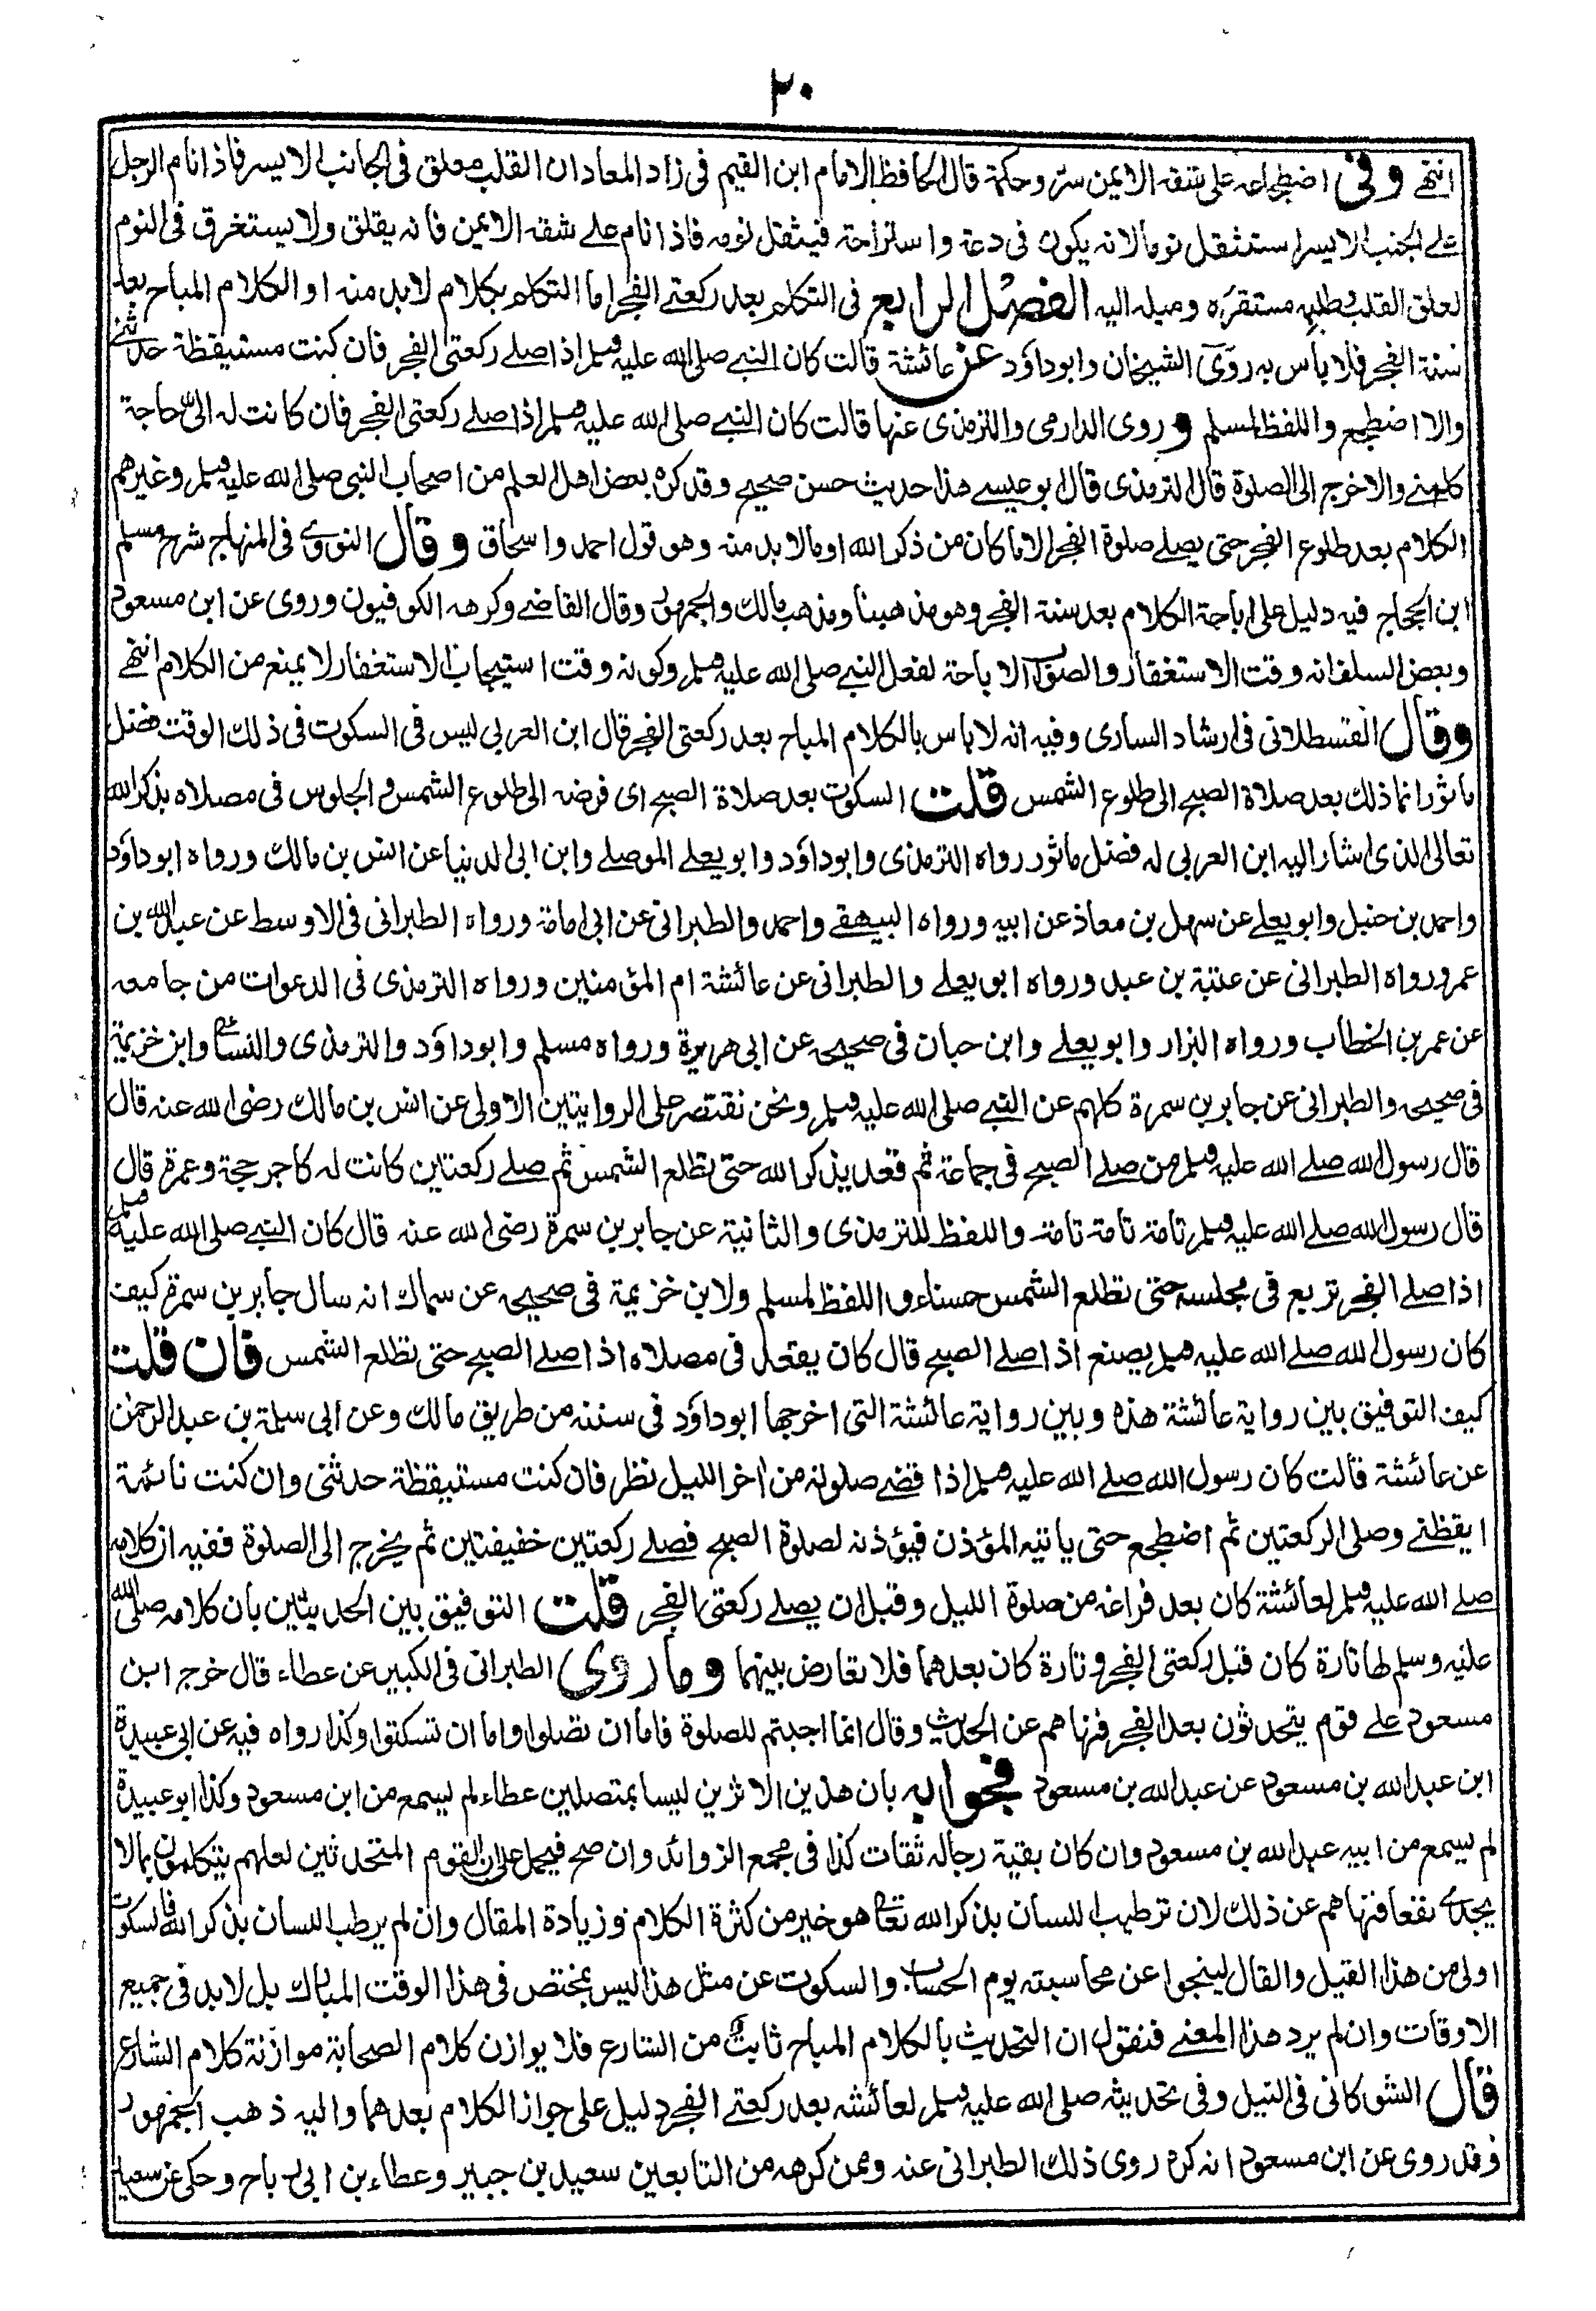 ٢٠
انتهى وفي اضطجاعه على شقه الايمن سر وحكمة قال الحافظ الامام ابن القيم في زاد المعاد ان القلب معلق في الجانب الايسر فاذا نام الرجل
على الجنب الايسر استثقل نوما لانه يكون في دعة واستراحة فيثقل نومه فاذا نام على شقه الايمن فانه يقلق ولا يستغرق في النوم
لعلق القلب وطلبه مستقره وميله اليه الفصل الرابع في التكلم بعد ركعتي الفجر اما التكلم بكلام لا بد منه او الكلام المباح بعد
سنة الفجر فلا باس به روى الشيخان وابوداود عن عائشة قالت كان النبي صلى الله عليه وسلم اذا صلى ركعتي الفجر فان كنت مستيقظة حدثني
والا اضطجع واللفظ لمسلم وروى الدارمي والترمذي عنها قالت كان النبي صلى الله عليه وسلم اذا صلى ركعتي الفجر فان كانت له الي حاجة
كلمني والا خرج الى الصلوة قال الترمذي قال ابو عيسى هذا حديث حسن صحيح وقد كره بعض اهل العلم من اصحاب النبي صلى الله عليه وسلم وغيرهم
الكلام بعد طلوع الفجر حتى يصلي صلوة الفجر الا ما كان من ذكر الله او ما لا بد منه وهو قول احمد واسحاق وقال النووي في المنهاج شرح مسلم
ابن الحجاج فيه دليل على اباحة الكلام بعد سنة الفجر وهو مذهبنا ومذهب مالك والجمهور وقال القاضي وكرهه الكوفيون وروى عن ابن مسعود
وبعض السلف انه وقت الاستغفار والصواب الاباحة لفعل النبي صلى الله عليه وسلم وكونه وقت استيجاب الاستغفار لا يمنع من الكلام انتهى
وقال القسطلاني في ارشاد الساري وفيه انه لا باس بالكلام المباح بعد ركعتي الفجر قال ابن العربي ليس في السكوت في ذلك الوقت فضل
ماثور انما ذلك بعد صلاة الصبح الى طلوع الشمس قلت السكوت بعد صلاة الصبح اى فرضه الى طلوع الشمس والجلوس في مصلاه بذكر الله
تعالى الذي اشار اليه ابن العربي له فضل ماثور رواه الترمذي وابوداود وابو يعلى الموصلي وابن ابي الدنيا عن انس بن مالك ورواه ابوداود
واحمد بن حنبل وابو يعلى عن سهل بن معاذ عن ابيه ورواه البيهقي واحمد والطبراني عن ابي امامة ورواه الطبراني في الاوسط عن عبد الله بن
عمر ورواه الطبراني عن عتبة بن عبد ورواه ابو يعلى والطبراني عن عائشة ام المؤمنين ورواه الترمذي في الدعوات من جامعه
عن عمر بن الخطاب ورواه البزار وابو يعلى وابن حبان في صحيحه عن ابي هريرة ورواه مسلم وابوداود والترمذي والنسائي وابن خزيمة
في صحيحه والطبراني عن جابر بن سمرة كلهم عن النبي صلى الله عليه وسلم ونحن نقتصر على الروايتين الاولى عن انس بن مالك رضي الله عنه قال
قال رسول الله صلى الله عليه وسلم من صلى الصبح في جماعة ثم قعد يذكر الله حتى تطلع الشمس ثم صلى ركعتين كانت له كاجر حجة وعمرة قال
قال رسول الله صلى الله عليه وسلم تامة تامة تامة واللفظ للترمذي والثانية عن جابر بن سمرة رضي الله عنه قال كان النبي صلى الله عليه وسلم
اذا صلى الفجر تربع في مجلسه حتى تطلع الشمس حسناء واللفظ لمسلم ولابن خزيمة في صحيحه عن سماك انه سال جابر بن سمرة كيف
كان رسول الله صلى الله عليه وسلم يصنع اذا صلى الصبح قال كان يقعد في مصلاه اذا صلى الصبح حتى تطلع الشمس فان قلت
كيف التوفيق بين رواية عائشة هذه وبين رواية عائشة التي اخرجها ابوداود في سننه من طريق مالك وعن ابي سلمة بن عبد الرحمن
عن عائشة قالت كان رسول الله صلى الله عليه وسلم اذا قضى صلوته من اخر الليل نظر فان كنت مستيقظة حدثني وان كنت نائمة
ايقظني وصلى الركعتين ثم اضطجع حتى ياتيه المؤذن فيؤذنه لصلوة الصبح فصلى ركعتين خفيفتين ثم يخرج الى الصلوة ففيه ان كلامه
صلى الله عليه وسلم لعائشة كان بعد فراغه من صلوة الليل وقبل ان يصلي ركعتي الفجر قلت التوفيق بين الحديثين بان كلامه صلى الله
عليه وسلم لها تارة كان قبل ركعتي الفجر وتارة كان بعدهما فلا تعارض بينهما وما روى الطبراني في الكبير عن عطاء قال خرج ابن
مسعود على قوم يتحدثون بعد الفجر فنهاهم عن الحديث وقال انما اجبتم للصلوة فاما ان تصلوا واما ان تسكتوا وكذا رواه فيه عن ابي عبيدة
ابن عبد الله بن مسعود عن عبد الله بن مسعود فجوابه بان هذين الاثرين ليسا بمتصلين عطاء لم يسمع من ابن مسعود وكذا ابو عبيدة
لم يسمع من ابيه عبد الله بن مسعود وان كان بقية رجاله ثقات كذا في مجمع الزوائد وان صح فيحمل على ان القوم المتحدثين لعلهم يتكلمون بما لا
يجدي نفعا فنهاهم عن ذلك لان ترطيب اللسان بذكر الله تعالى هو خير من كثرة الكلام وزيادة المقال وان لم يرطب اللسان بذكر الله فالسكوت
اولى من هذا القيل والقال لينجوا عن محاسبته يوم الحساب والسكوت عن مثل هذا ليس بمختص في هذا الوقت المبارك بل لا بد في جميع
الاوقات وان لم يرد هذا المعنى فنقول ان التحديث بالكلام المباح ثابت من الشارع فلا يوازن كلام الصحابة موازنة كلام الشارع
قال الشوكاني في النيل وفي تحديثه صلى الله عليه وسلم لعائشه بعد ركعتي الفجر دليل على جواز الكلام بعدهما واليه ذهب الجمهور
وقد روى عن ابن مسعود انه كره روى ذلك الطبراني عنه وممن كرهه من التابعين سعيد بن جبير وعطاء بن ابي رباح وحكى عن سعيد